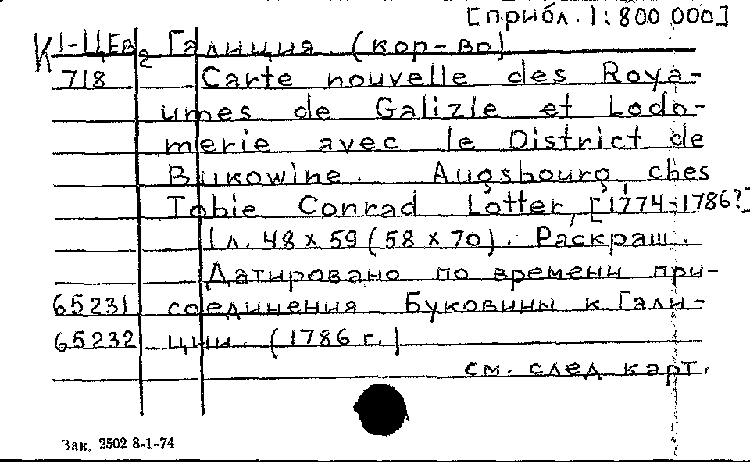 [прибл. 1:800 000]
К 1-ЦЕв 2 Галиция. (кор-во)
718 Carte nouvelle des Roya-
umes de Galizie et Lodo-
merie avec le District de
Bukowine. Augsbourg, ches
Tobie Conrad Lotter, [1774-1786?]
1 л. 48 x 59 (58 x 70). Раскраш.
Датировано по времени при-
65231 соединения Буковины к Гали-
65232 ции. (1786 г.)
см. след. карт.
Зак. 2502 8-1-74